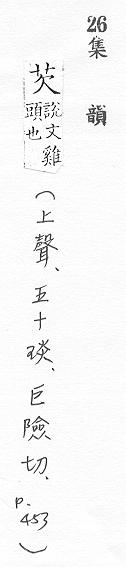 26 集韻
芡 說文雞頭也
(上聲、五十琰、巨險切、p.453)